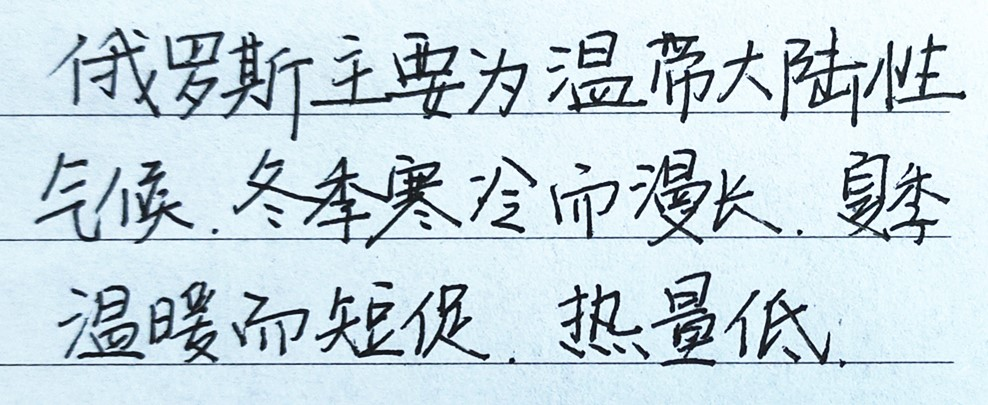 俄罗斯主要为温带大陆性
气候.冬季寒冷而漫长.夏季
温暖而短促.热量低.